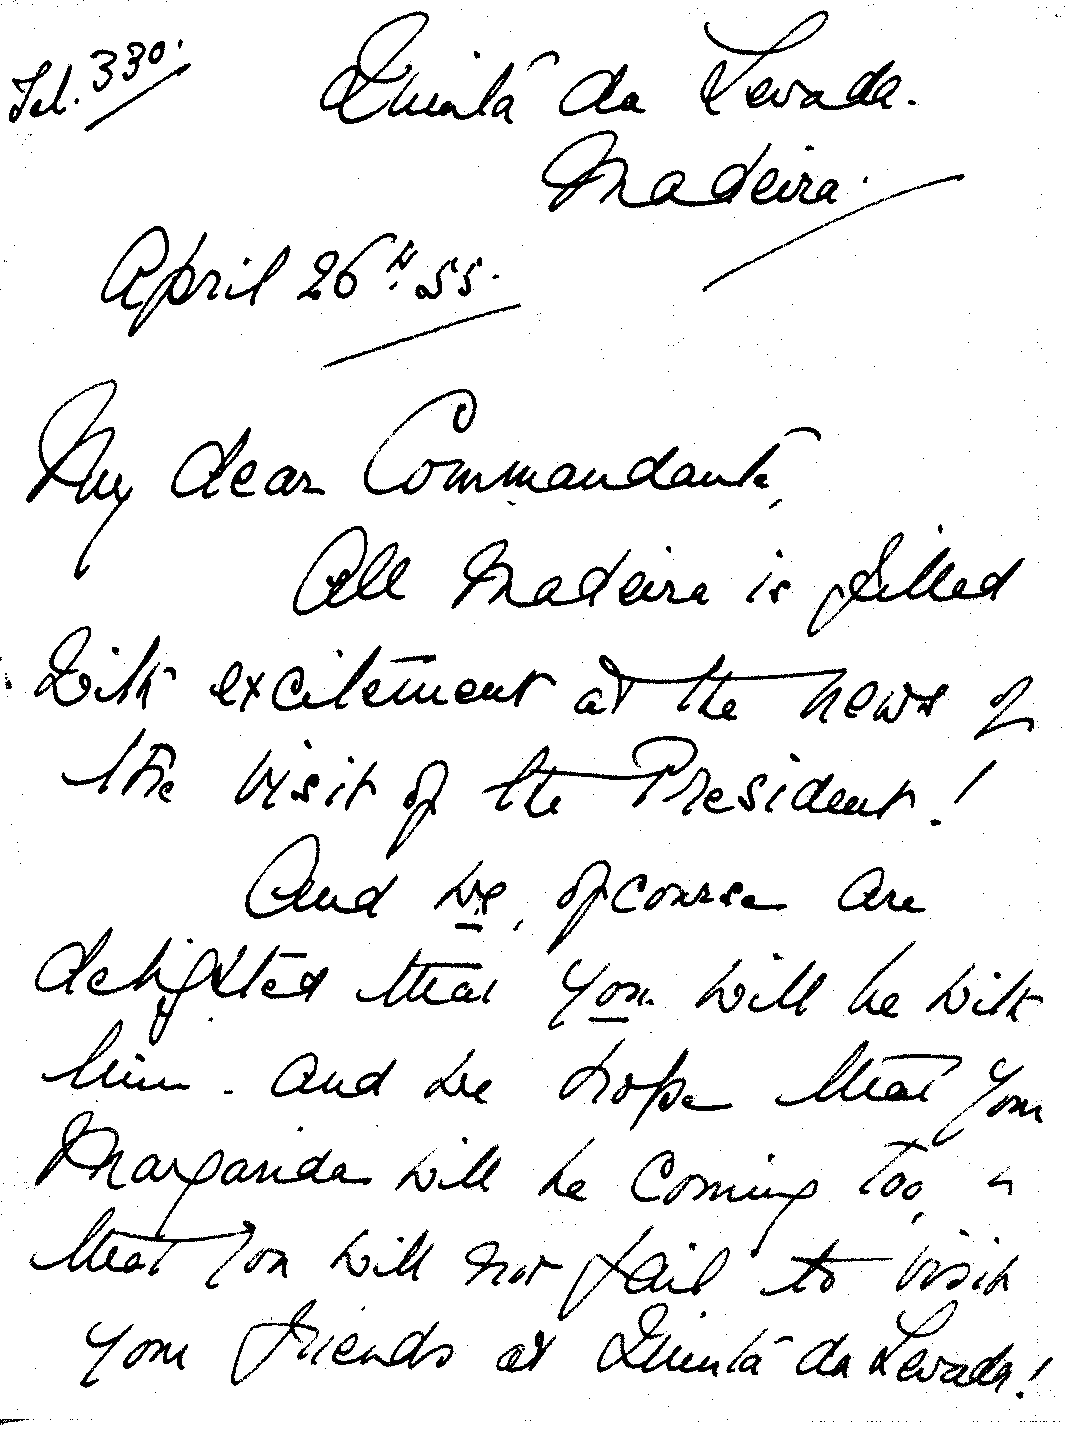 Tel. 330.
Quinta da Levada.
Madeira.
April 26th. 55.
My dear Commandante,
All Madeira is filled
with excitement at the news of
the visit of the President!
And we, ofcourse are
delighted that you will be with
him. And we hope that your
Margarida will be coming too, &
that you will not fail to visit
your friends at Quinta da Levada!